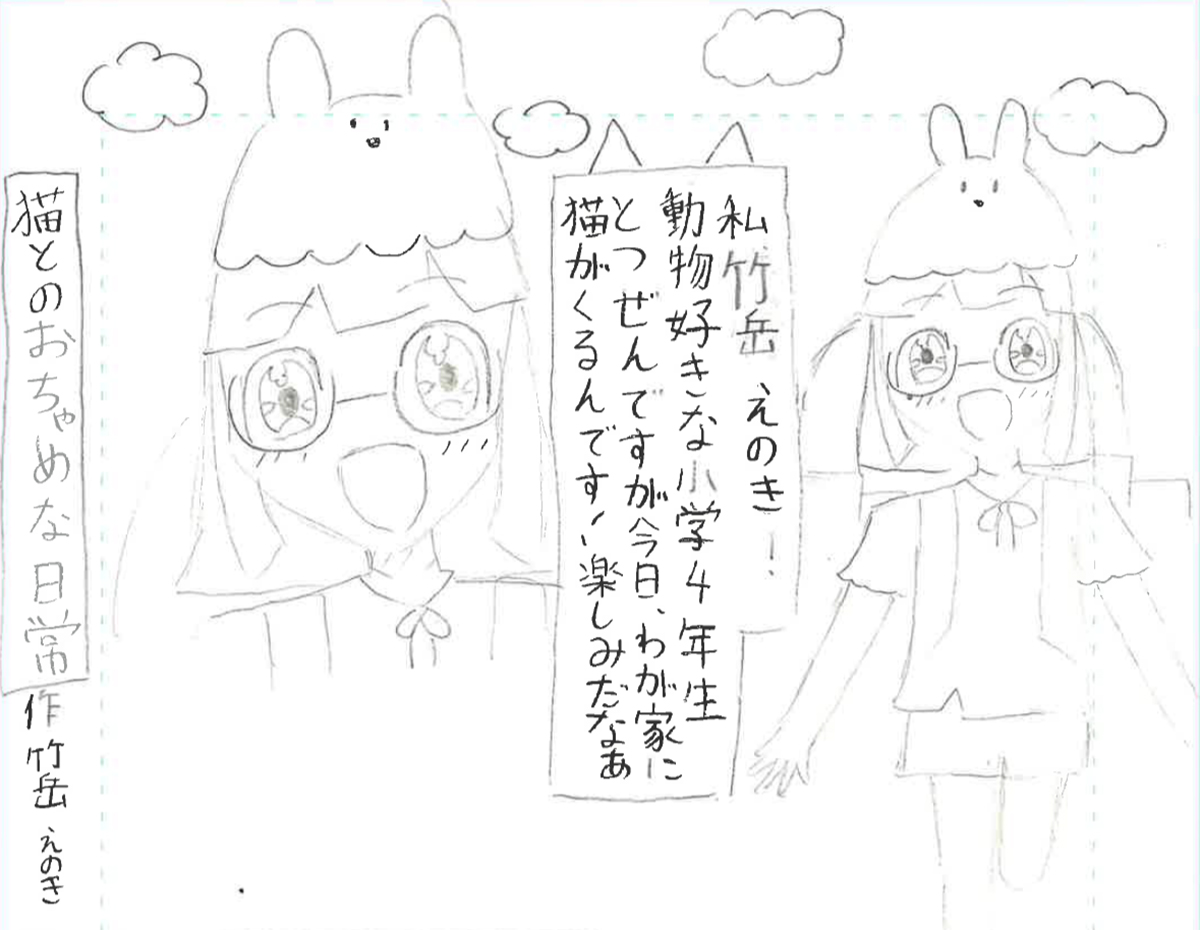 私竹岳 えのき!
動物好きな小学4年生
とつぜんですが今日、わが家に
猫がくるんです!楽しみだなあ
猫とのおちゃめな日常
作 竹岳 えのき